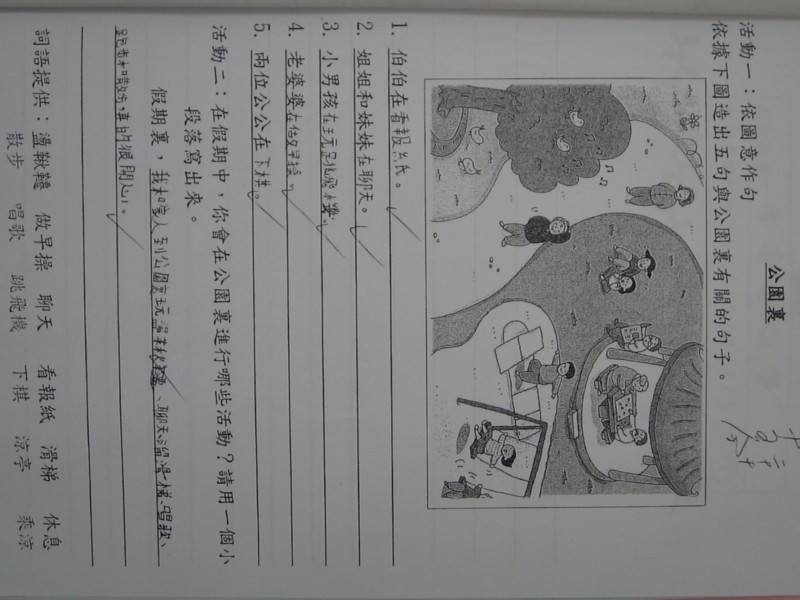 公園裏
活動一：依圖意作句
依據下圖造出五句與公園裏有關的句子。
1. 伯伯在看報紙。
2. 姐姐和妹妹在聊天。
3. 小男孩在玩跳飛機。
4. 老婆婆在做早操。
5. 兩位公公在下棋。
活動二：在假期中，你會在公園裏進行哪些活動？請用一個小
段落寫出來。
假期裏，我和家人到公園裏玩盪鞦韆、聊天、滑梯、唱歌、
散步，真的很開心。
詞語提供：盪鞦韆 做早操 聊天 看報紙 滑梯 休息
散步 唱歌 跳飛機 下棋 涼亭 乘涼